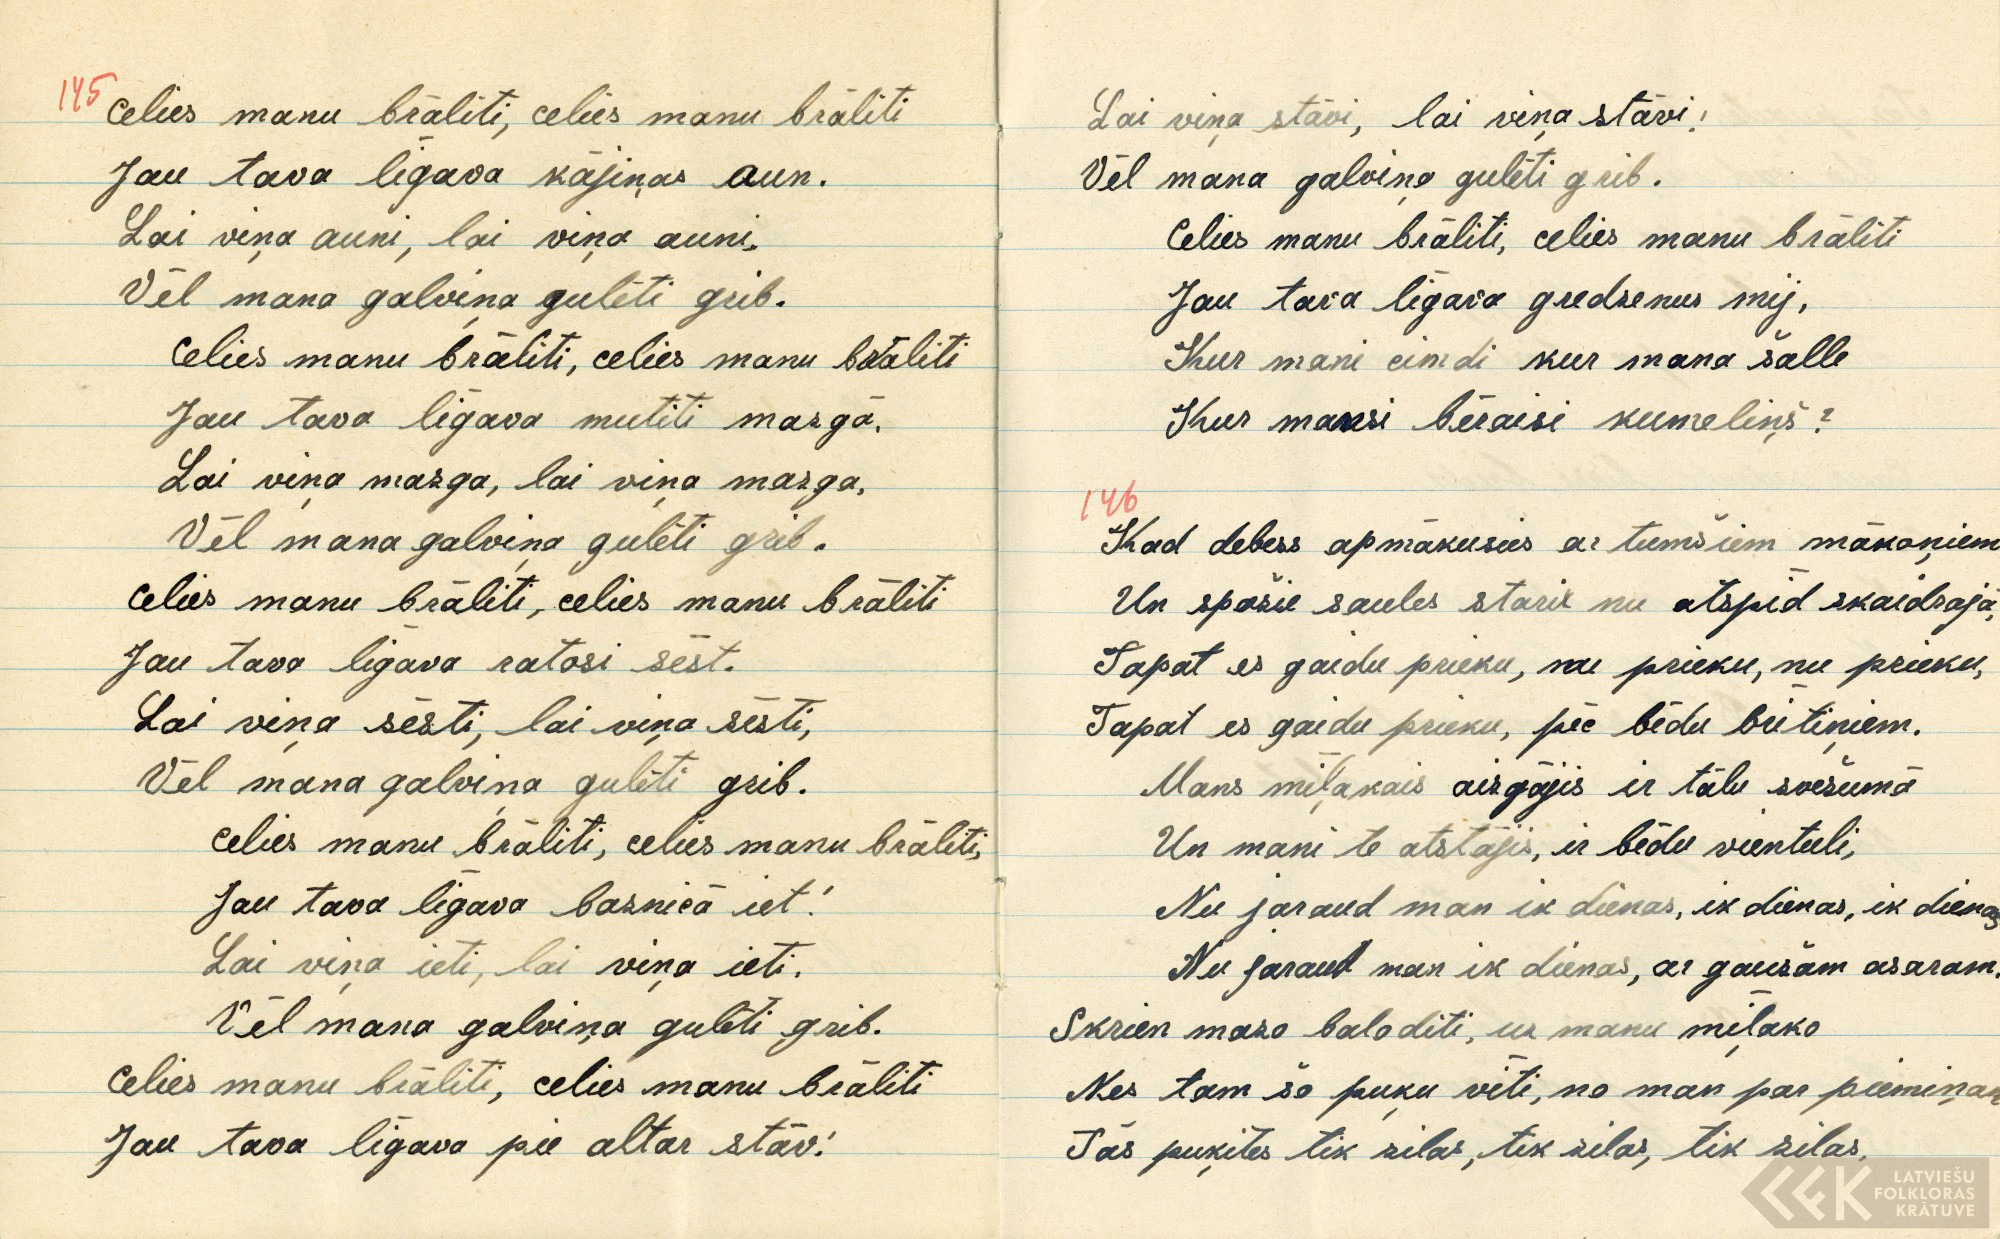 145
Celies manu brāliti, celies manu brāliti
Jau tava līgava kājiņas aun.
Lai viņa auni, lai viņa auni.
Vēl mana galviņa gulēti grib.
Celies manu brāliti, celies manu brāliti
Jau tava līgava mutīti mazgā.
Lai viņa mazga, lai viņa mazga,
Vēl mana galviņa gulēti grib.
Celies manu brāliti, celies manu brāliti
Jau tava līgava ratōsi sēst.
Lai viņa sēsti, lai viņa sēsti,
Vēl mana galviņa gulēti grib.
Celies manu brāliti, celies manu brāliti,
Jau tava līgava baznicā iet!
Lai viņa ieti, lai viņa ieti.
Vēl mana galviņa gulēti grib.
Celies manu brāliti, celies manu brāliti
Jau tava līgava pie altar stāv!
Lai viņa stāvi, lai viņa stāvi!
Vēl mana galviņa gulēti grib.
Celies manu brāliti, celies manu brāliti
Jau tava līgava gredzenus mij,
Kur mani cimdi kur mana šalle
Kur mansi bēraisi kumeliņš?
146
Kad debess apmākusies ar tumšiem mākoņiem
Un spožie saules stari nu atspīd skaidrajā,
Tāpat es gaidu prieku, nu prieku, nu prieku,
Tapat es gaidu prieku, pēc bēdu brītiņiem.
Mans mīļakais aizgājis ir tālu svešumā
Un mani te atstājis, ir bēdu vientuli,
Nu jaraud man ik dienas, ik dienas, ik dienas
Nu jaraud man ik dienas, ar gaušām asaram.
Skrien mazo balodīti, uz manu mīļako
Nes tam šo puķu vīti, no man par piemiņan
Tās puķites tik zilas, tik zilas, tik zilas,
LATVIEŠU
FOLKLORAS
KRĀTUVE